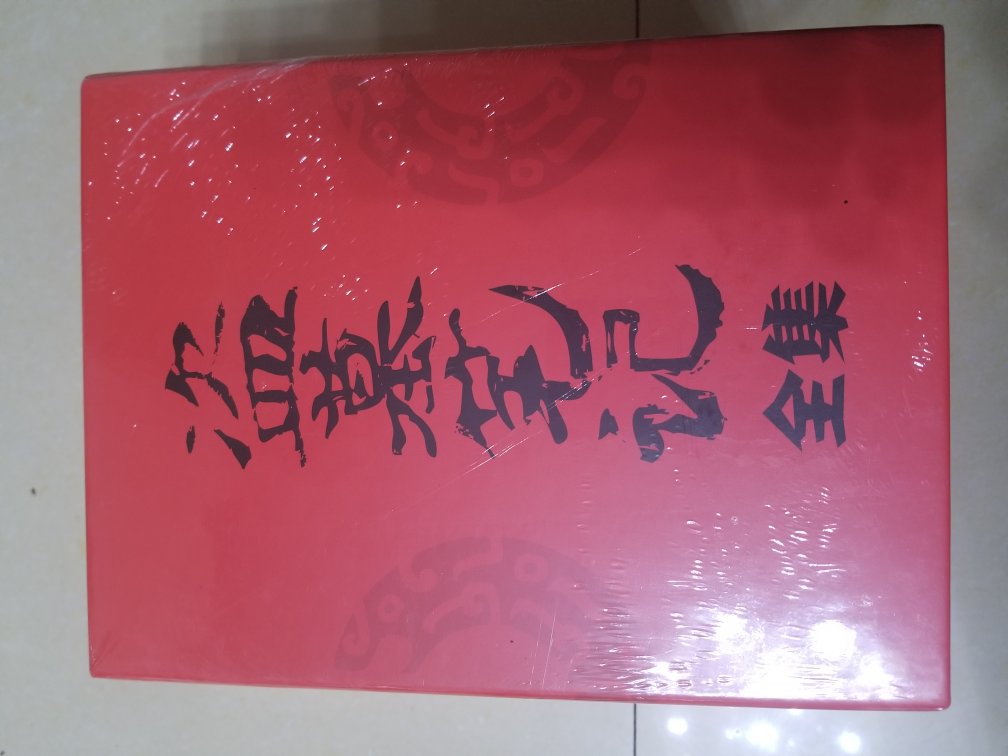 盗墓笔记
全集